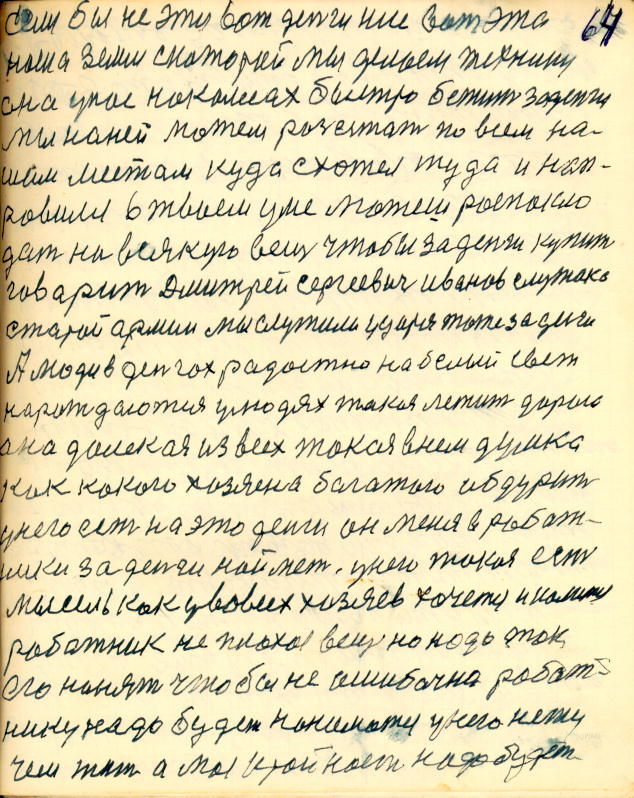 64
Если бы не эти вот денги ние вот эта
наша земля с каторай мы делаем технику
она у нас на колесах быстро бежит за денги
мы на ней можем розезжат по всем на-
шим местам куда схотел туда и нап-
ровили в твоем уме можеш роспокло
дат на всякую вещ чтобы за денги купит
говарит Дмитрей Сергеевич иванов служака
старой армии мы служили у царя тоже за денги
А люди в денгох радостно на белый свет
нарождаются у людях такая лежит дорога
она далекая из всех токая в нем думка
как какого хозяена багатого обдурит
у него ест на это денги он меня в работ-
ники за денги наймет. у него такая есть
мысель как у вовсех хозяев хочется
работник не плохая вещ но надо ток
его нанят что бы не ошибочна работ-
нику надо будет нанимотся у него нету
чем жит а моя крайност надо будет